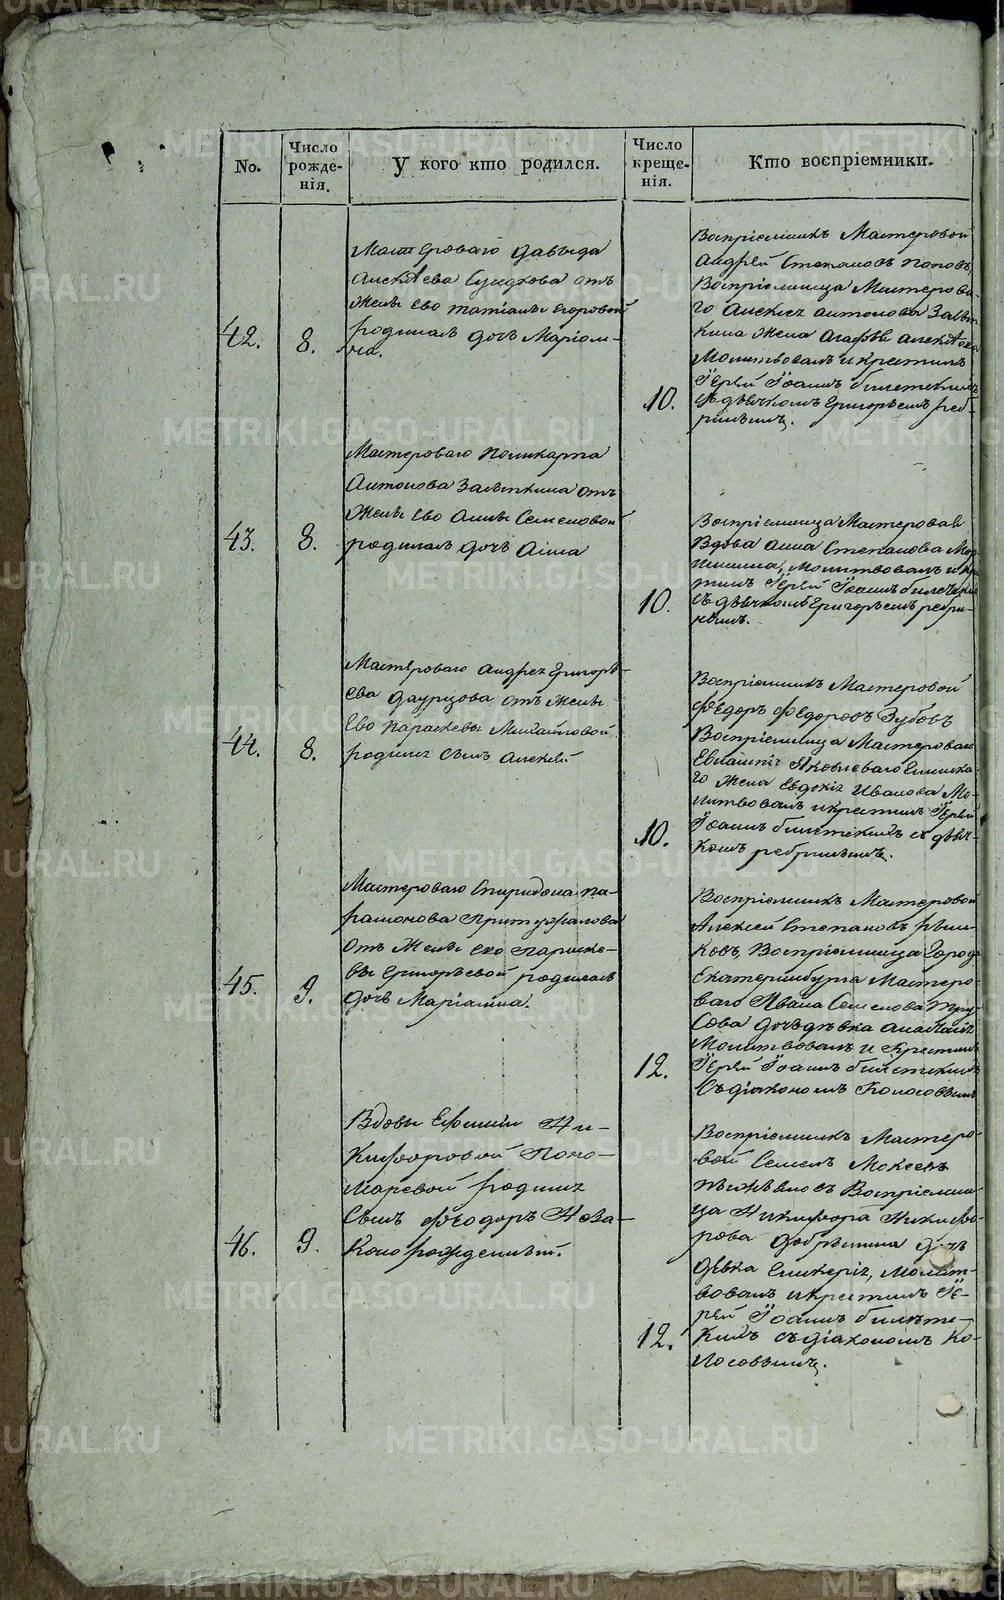 No.
Число рожде-
нія.
У кого кто родился.
Число креще-
нія.
Кто воспріемники.
42.
8.
Мастероваго Давыда
Алексѣева Сундукова отъ
Жены Ево Татіаны Егоровой
родилась дочь Маріам-
на.
10.
Воспріемникъ Мастеровой
Андрей Степановъ Поповъ,
Воспріемница Мастерова-
го Алексея Антонова Залѣт-
кина Жена Агафья Алексѣева
Молитвовалъ и крестилъ
Іерей Іоаннъ
съ дьячкомъ Григорьемъ Реб-
ринымъ.
43.
8.
Мастероваго Поликарпа
Антонова Залѣткина отъ
Жены Ево Анны Семеновой
родилась дочь Анна
10.
Воспріемница Мастеровая
Вдова Анна Степанова
Молитвовалъ и кре-
стилъ Іерей Іоаннъ
съ дьячкомъ Григорьемъ Ребри-
нымъ.
44.
8.
Мастероваго Андрея Григорь-
ева Даурцова отъ Жены
Ево Параскевы Михайловой
родился Сынъ Алексей
10.
Воспріемникъ Мастеровой
Федоръ Федоровъ Зубовъ
Воспріемница Мастероваго
Яковлеваго
го Жена Евдокія Иванова Мо-
литвовалъ и крестилъ Іерей
Іоаннъ съ дьяч-
комъ Ребринымъ.
45.
9.
Мастероваго Спиридона Па-
рамонова
отъ Жены Ево Параске-
вы Григорьевой родилась
дочь Маріамна.
12.
Воспріемникъ Мастеровой
Алексей Степановъ Рѣши-
ковъ, Воспріемница Города
Екатеринбурга Мастеро-
ваго Ивана Семенова Тру-
сова дочь дѣвка
Молитвовалъ и Крестилъ
Іерей Іоаннъ
Съ діакономъ Колосовымъ
46.
9.
Вдовы Ефиміи Ни-
кифоровой Поно-
маревой родился
Сынъ Феодоръ Неза-
коннорожденный.
12.
Воспріемникъ Мастеро-
вой Семенъ Мокеевъ
Воспріемни-
ца Никифора Никифо-
рова Добрынина дочь
Девка Гликерія, Молит-
вовалъ и крестилъ Іе-
рей Іоаннъ
съ діакономъ Ко-
лосовымъ.
METRIKI.GASO-URAL.RU